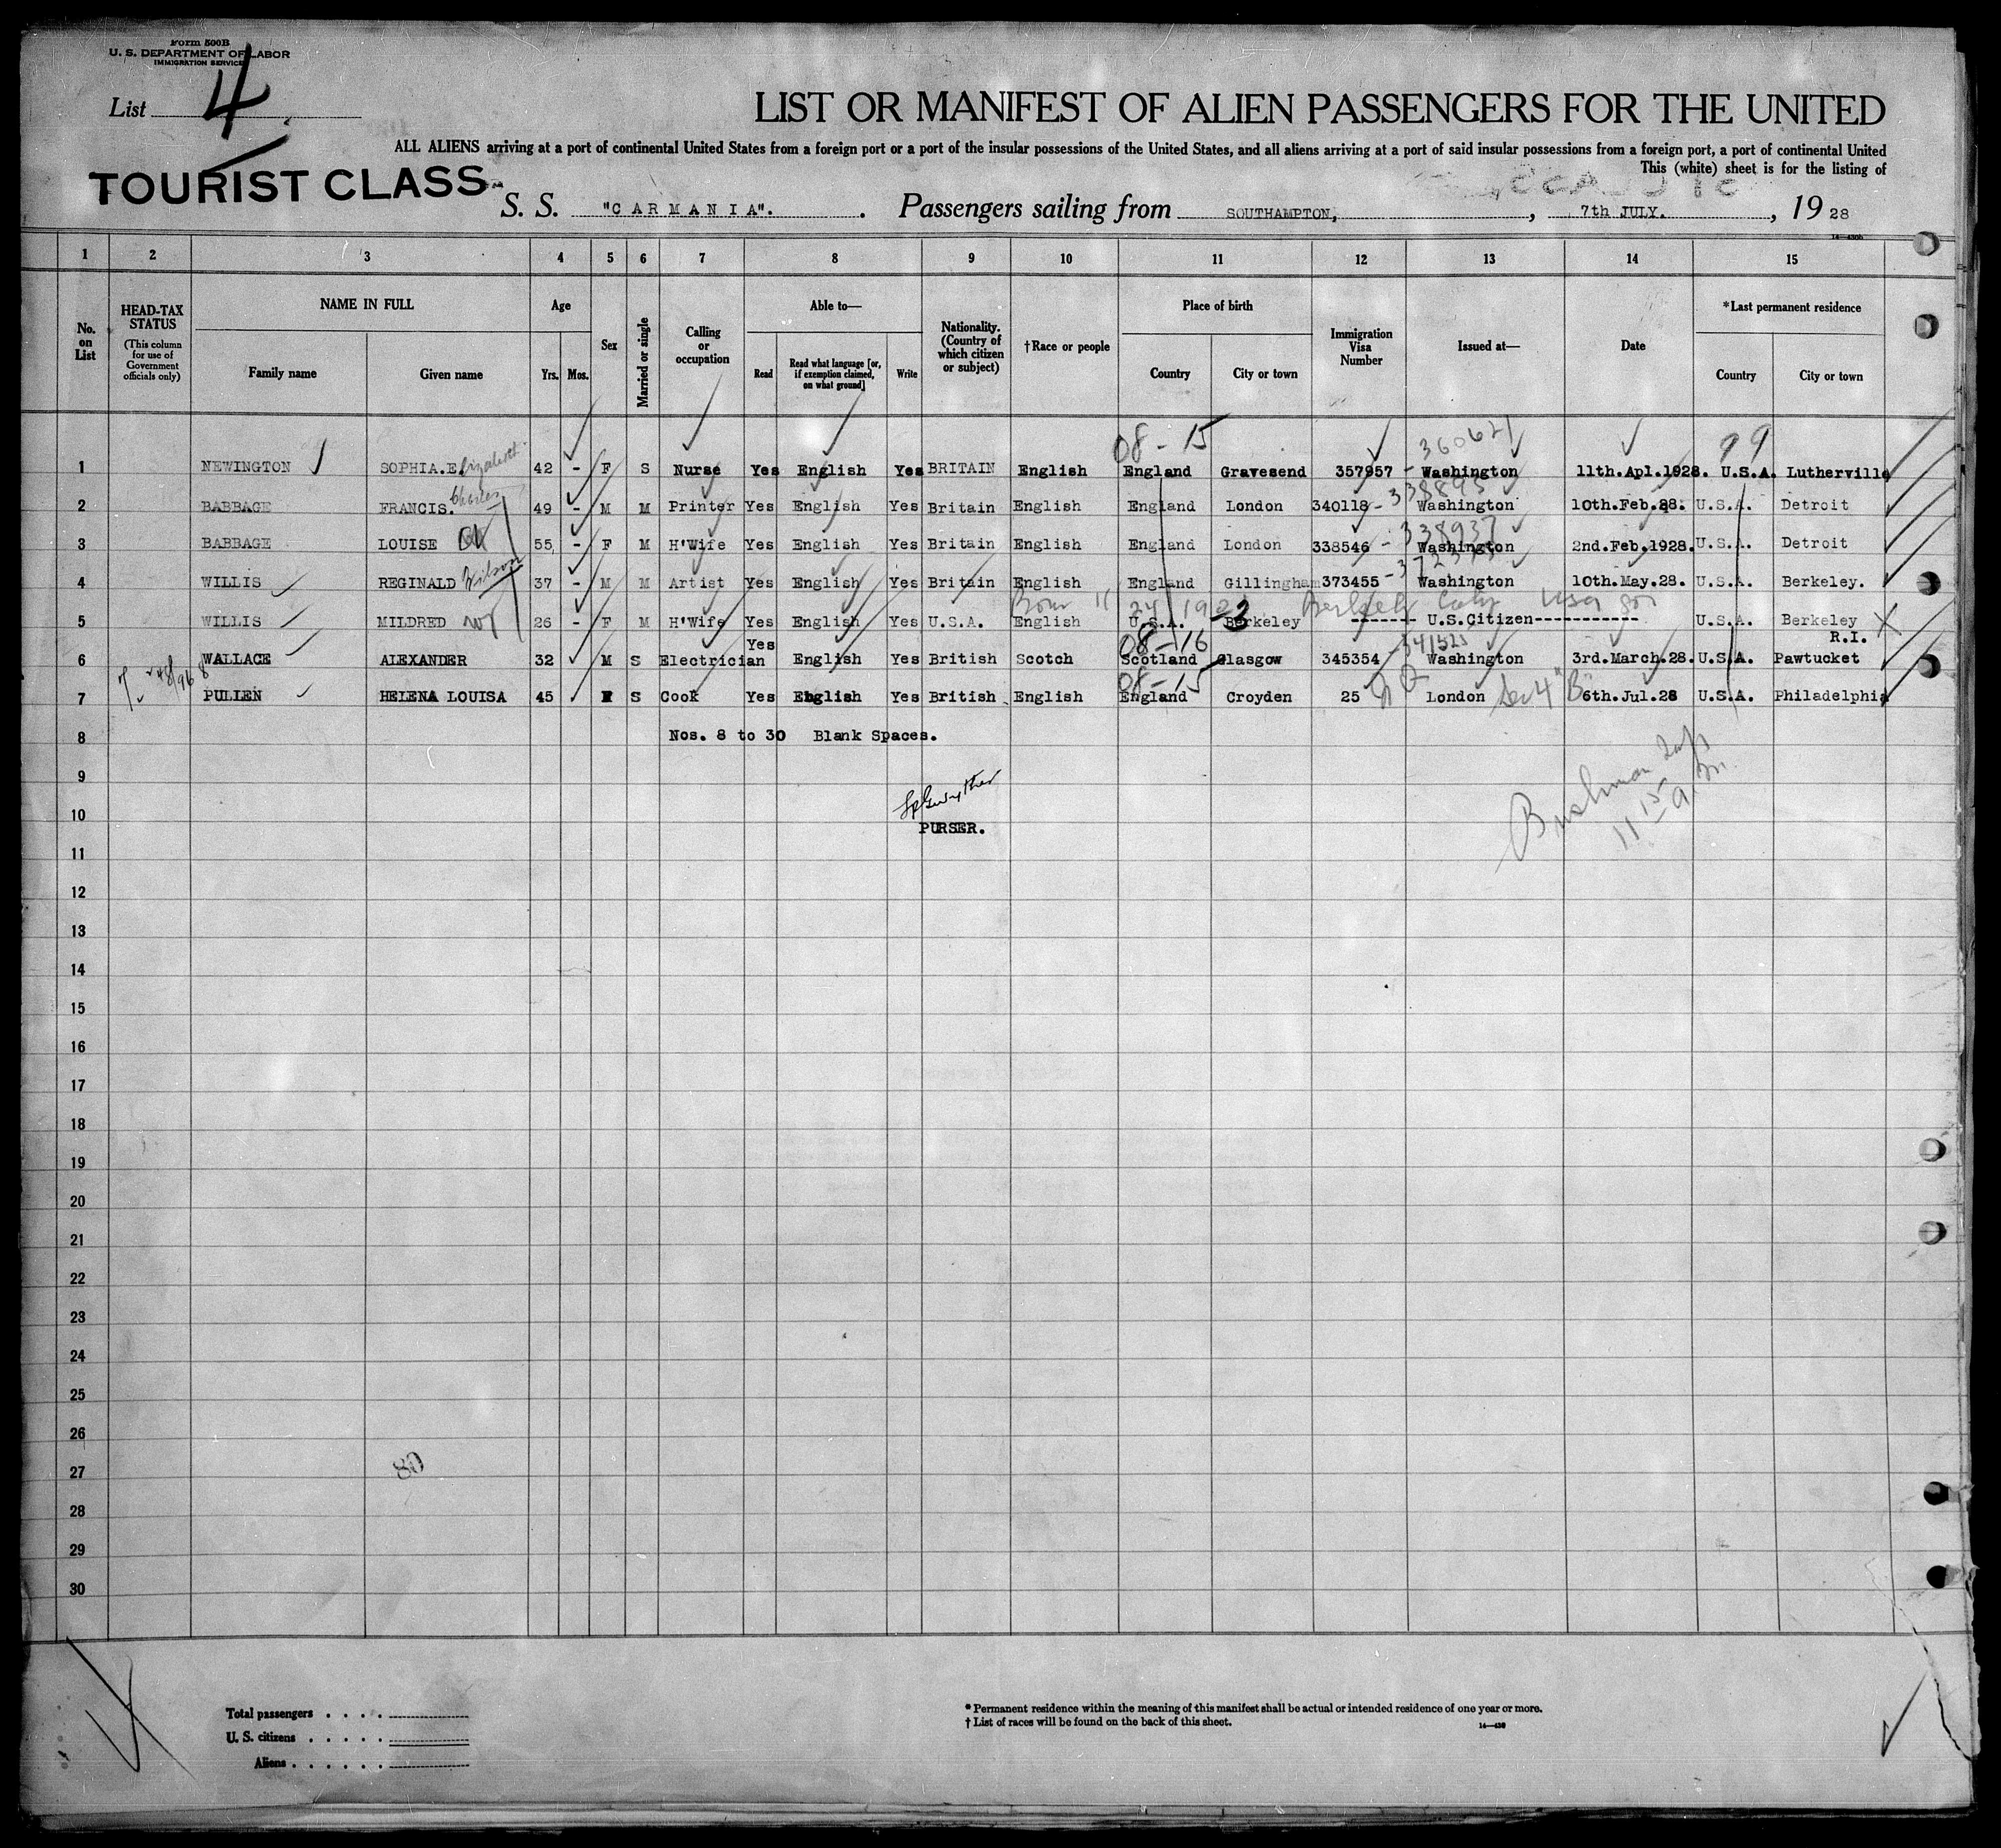 Form 500B
U. S. DEPARTMENT OF LABOR
IMMIGRATION SERVICE
List 4
LIST OR MANIFEST OF ALIEN PASSENGERS FOR THE UNITED
ALL ALIENS arriving at a port of continental United States from a foreign port or a port of the insular possessions of the United States, and all aliens arriving at a port of said insular possessions from a foreign port, a port of continental United
This (white) sheet is for the listing of
TOURIST CLASS
S. S. "CARMANIA". Passengers sailing from SOUTHAMPTON, 7th JULY. , 19 28
1 2 3 4 5 6 7 8 9 10 11 12 13 14 15
No. on List
HEAD-TAX STATUS (This column for use of Government officials only)
NAME IN FULL
Family name Given name
Age
Yrs. Mos.
Sex
Married or single
Calling or occupation
Able to—
Read Read what language [or, if exemption claimed, on what ground] Write
Nationality. (Country of which citizen or subject)
†Race or people
Place of birth
Country City or town
Immigration Visa Number
Issued at—
Date
*Last permanent residence
Country City or town
08-15 360621 99
1 NEWINGTON SOPHIA.Elizabeth 42 - F S Nurse Yes English Yes BRITAIN English England Gravesend 357957 - Washington 11th.Apl.1928. U.S.A. Lutherville
2 BABBAGE FRANCIS. Charles 49 - M M Printer Yes English Yes Britain English England London 340118 - 338893 Washington 10th.Feb.28. U.S.A. Detroit
3 BABBAGE LOUISE 55 - F M H'Wife Yes English Yes Britain English England London 338546 - 338937 Washington 2nd.Feb.1928. U.S.A. Detroit
4 WILLIS REGINALD Wilson 37 - M M Artist Yes English Yes Britain English England Gillingham 373455 - Washington 10th.May.28. U.S.A. Berkeley.
5 WILLIS MILDRED 26 - F M H'Wife Yes English Yes U.S.A. English U.S.A. Berkeley ------- U.S.Citizen----------- U.S.A. Berkeley
R.I.
08-16
6 WALLACE ALEXANDER 32 M S Electrician Yes English Yes British Scotch Scotland Glasgow 345354 - Washington 3rd.March.28. U.S.A. Pawtucket
08-15
7 PULLEN HELENA LOUISA 45 F S Cook Yes English Yes British English England Croyden 25 London 6th.Jul.28 U.S.A. Philadelphia
8 Nos. 8 to 30 Blank Spaces.
9
10
PURSER.
11
12
13
14
15
16
17
18
19
20
21
22
23
24
25
26
27 80
28
29
30
Total passengers . . . .
U. S. citizens . . . . .
Aliens . . . . . .
* Permanent residence within the meaning of this manifest shall be actual or intended residence of one year or more.
† List of races will be found on the back of this sheet.
14—430